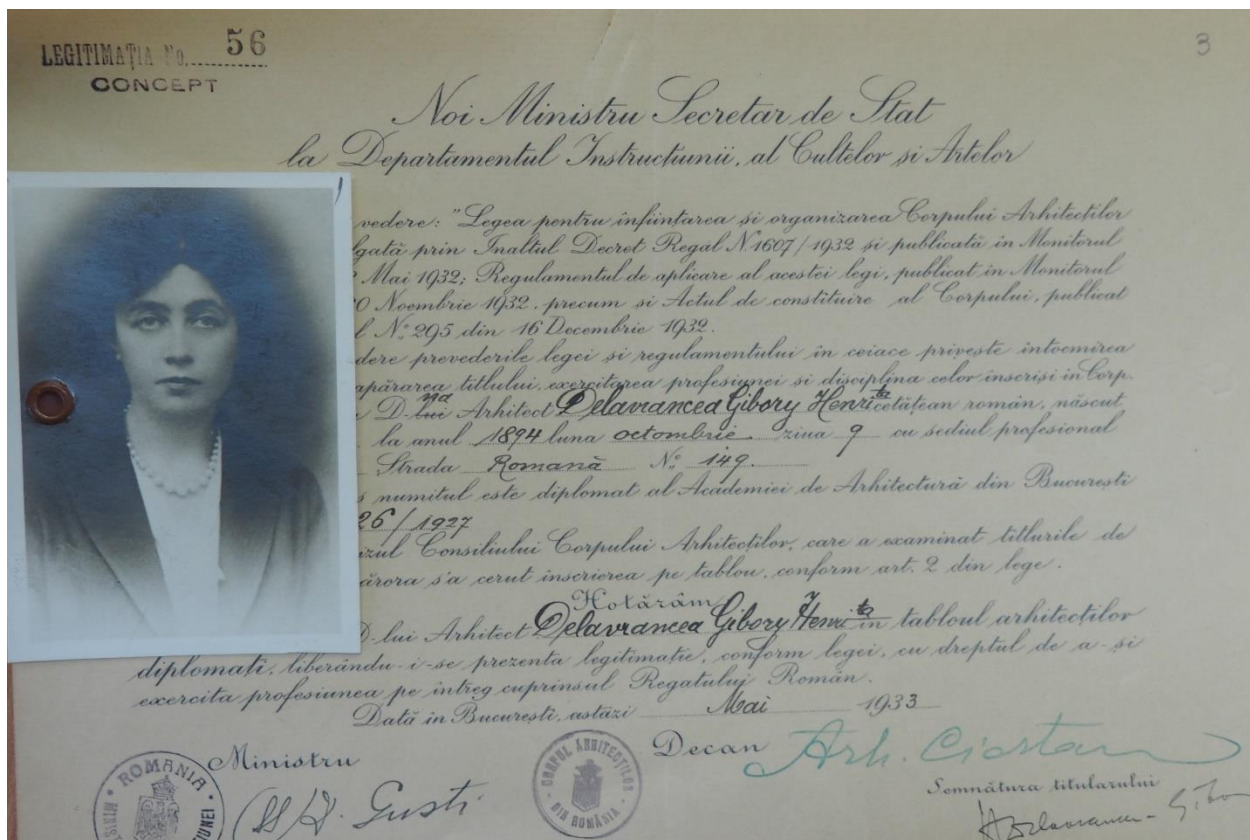 LEGITIMAȚIA No. 56
CONCEPT
3
Noi Ministru Secretar de Stat
la Departamentul Instrucțiunii, al Cultelor si Artelor
vedere: "Legea pentru înființarea si organizarea Corpului Arhitecților
gată prin Inaltul Decret Regal N 1607/1932 si publicată in Monitorul
Mai 1932; Regulamentul de aplicare al acestei legi, publicat in Monitorul
0 Noembrie 1932, precum si Actul de constituire al Corpului, publicat
l No 295 din 16 Decembrie 1932.
dere prevederile legei si regulamentului în ceiace priveste intocmirea
apărarea titlului, exercitarea profesiunei si disciplina celor inscrisi in Corp.
D-na Arhitect Delavrancea Gibory Henrita cetățean român, născut
la anul 1894 luna octombrie ziua 9 cu sediul profesional
Strada Romană No 149.
s numitul este diplomat al Academiei de Arhitectură din Bucuresti
26/1927
izul Consiliului Corpului Arhitecților, care a examinat titlurile de
ărora s'a cerut inscrierea pe tablou, conform art. 2 din lege.
Hotărâm
D-lui Arhitect Delavrancea Gibory Henrita in tabloul arhitecților
diplomati, liberându-i-se prezenta legitimatie, conform legei, cu dreptul de a-si
exercita profesiunea pe întreg cuprinsul Regatului Român.
Dată in Bucuresti, astazi Mai 1933
Ministru
Decan Arh. Ciortan
(ss) D. Gusti
Semnătura titularului
ROMANIA
CORPUL ARHITECȚILOR DIN ROMÂNIA
H Delavrancea-Gibo